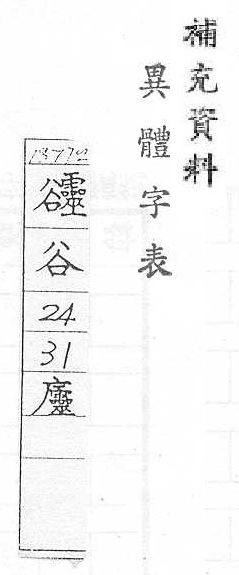 補充資料
異體字表
谷
24
31